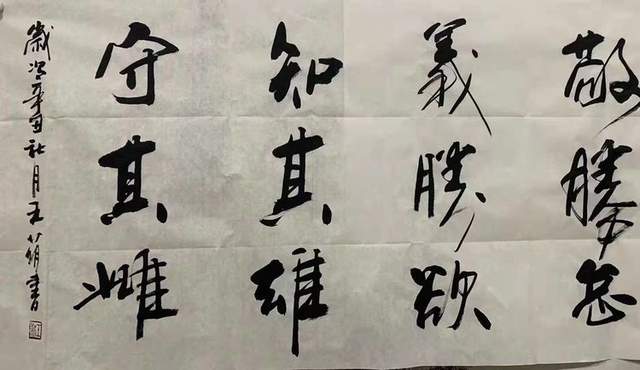 敬勝怠
義勝欲
知其雄
守其雌
歲次辛丑社月王蕱書